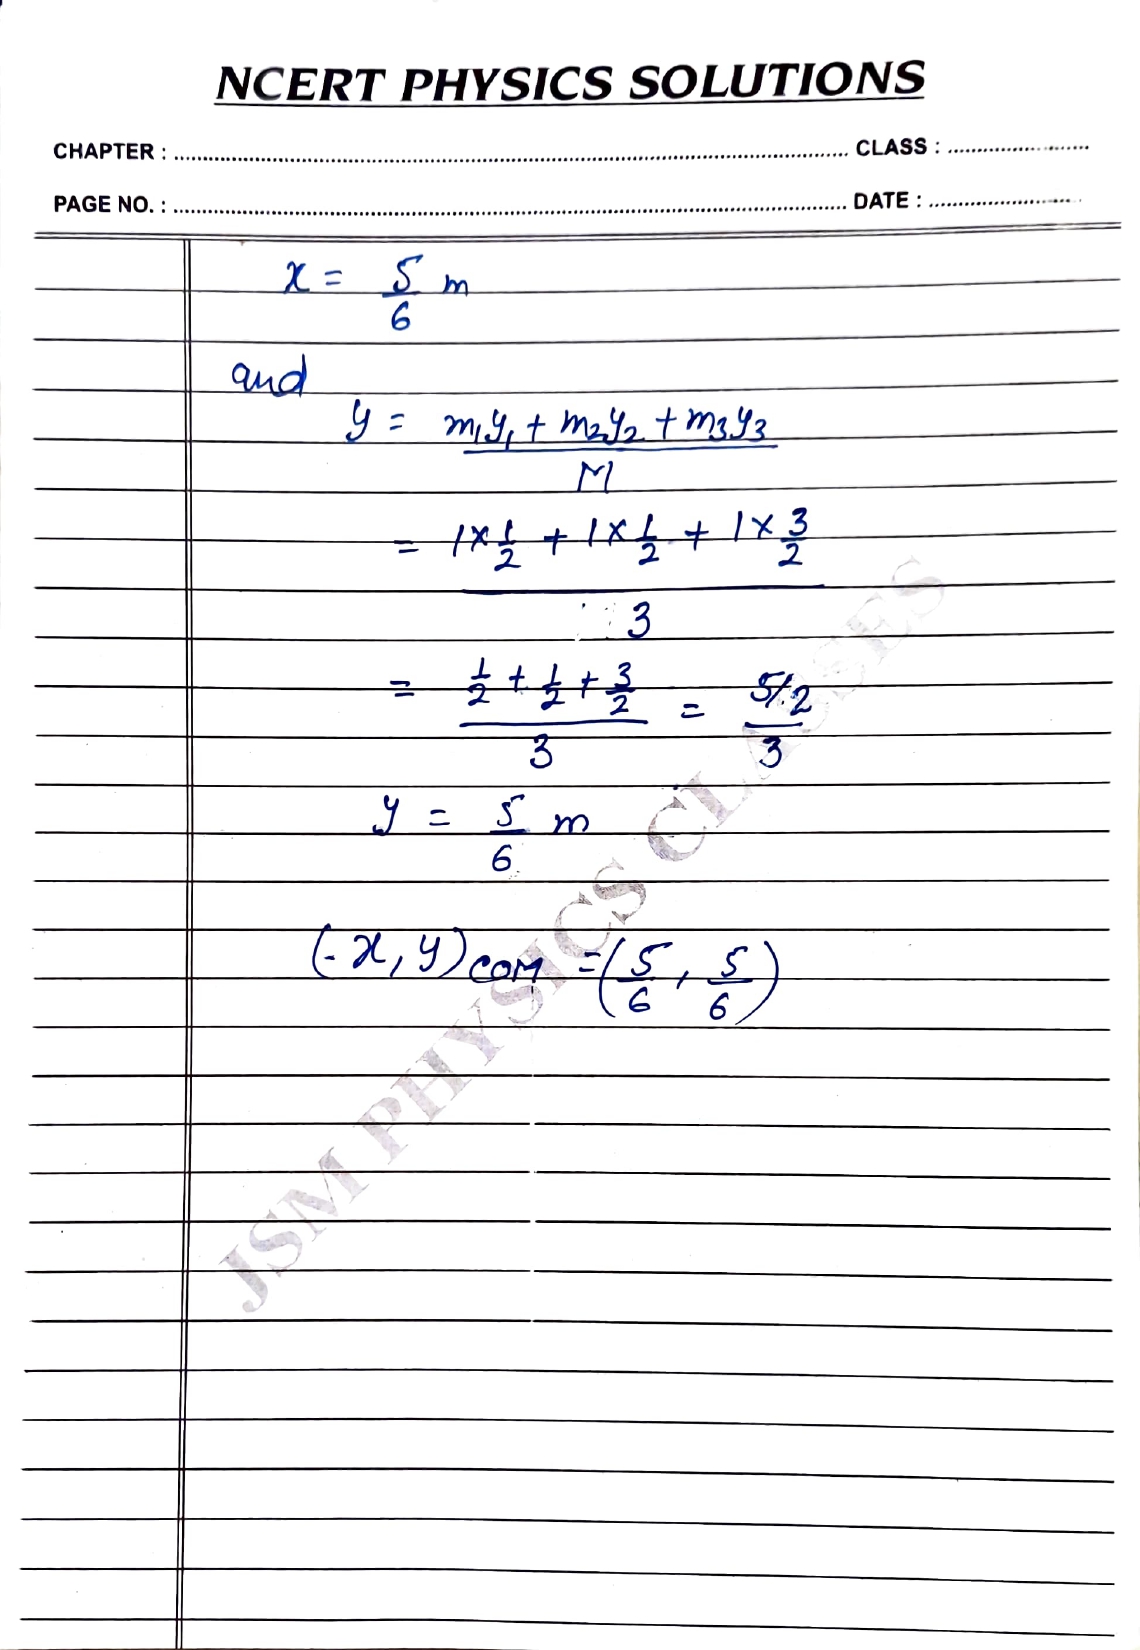 NCERT PHYSICS SOLUTIONS
CHAPTER : ........................................ CLASS : ....................
PAGE NO. : ........................................ DATE : ....................
x = 5/6 m
and
y = m₁y₁ + m₂y₂ + m₃y₃ / M
= 1×1/2 + 1×1/2 + 1×3/2 / 3
= 1/2 + 1/2 + 3/2 / 3 = 5/2 / 3
y = 5/6 m
(x, y)COM = (5/6, 5/6)
JSM PHYSICS CLASSES